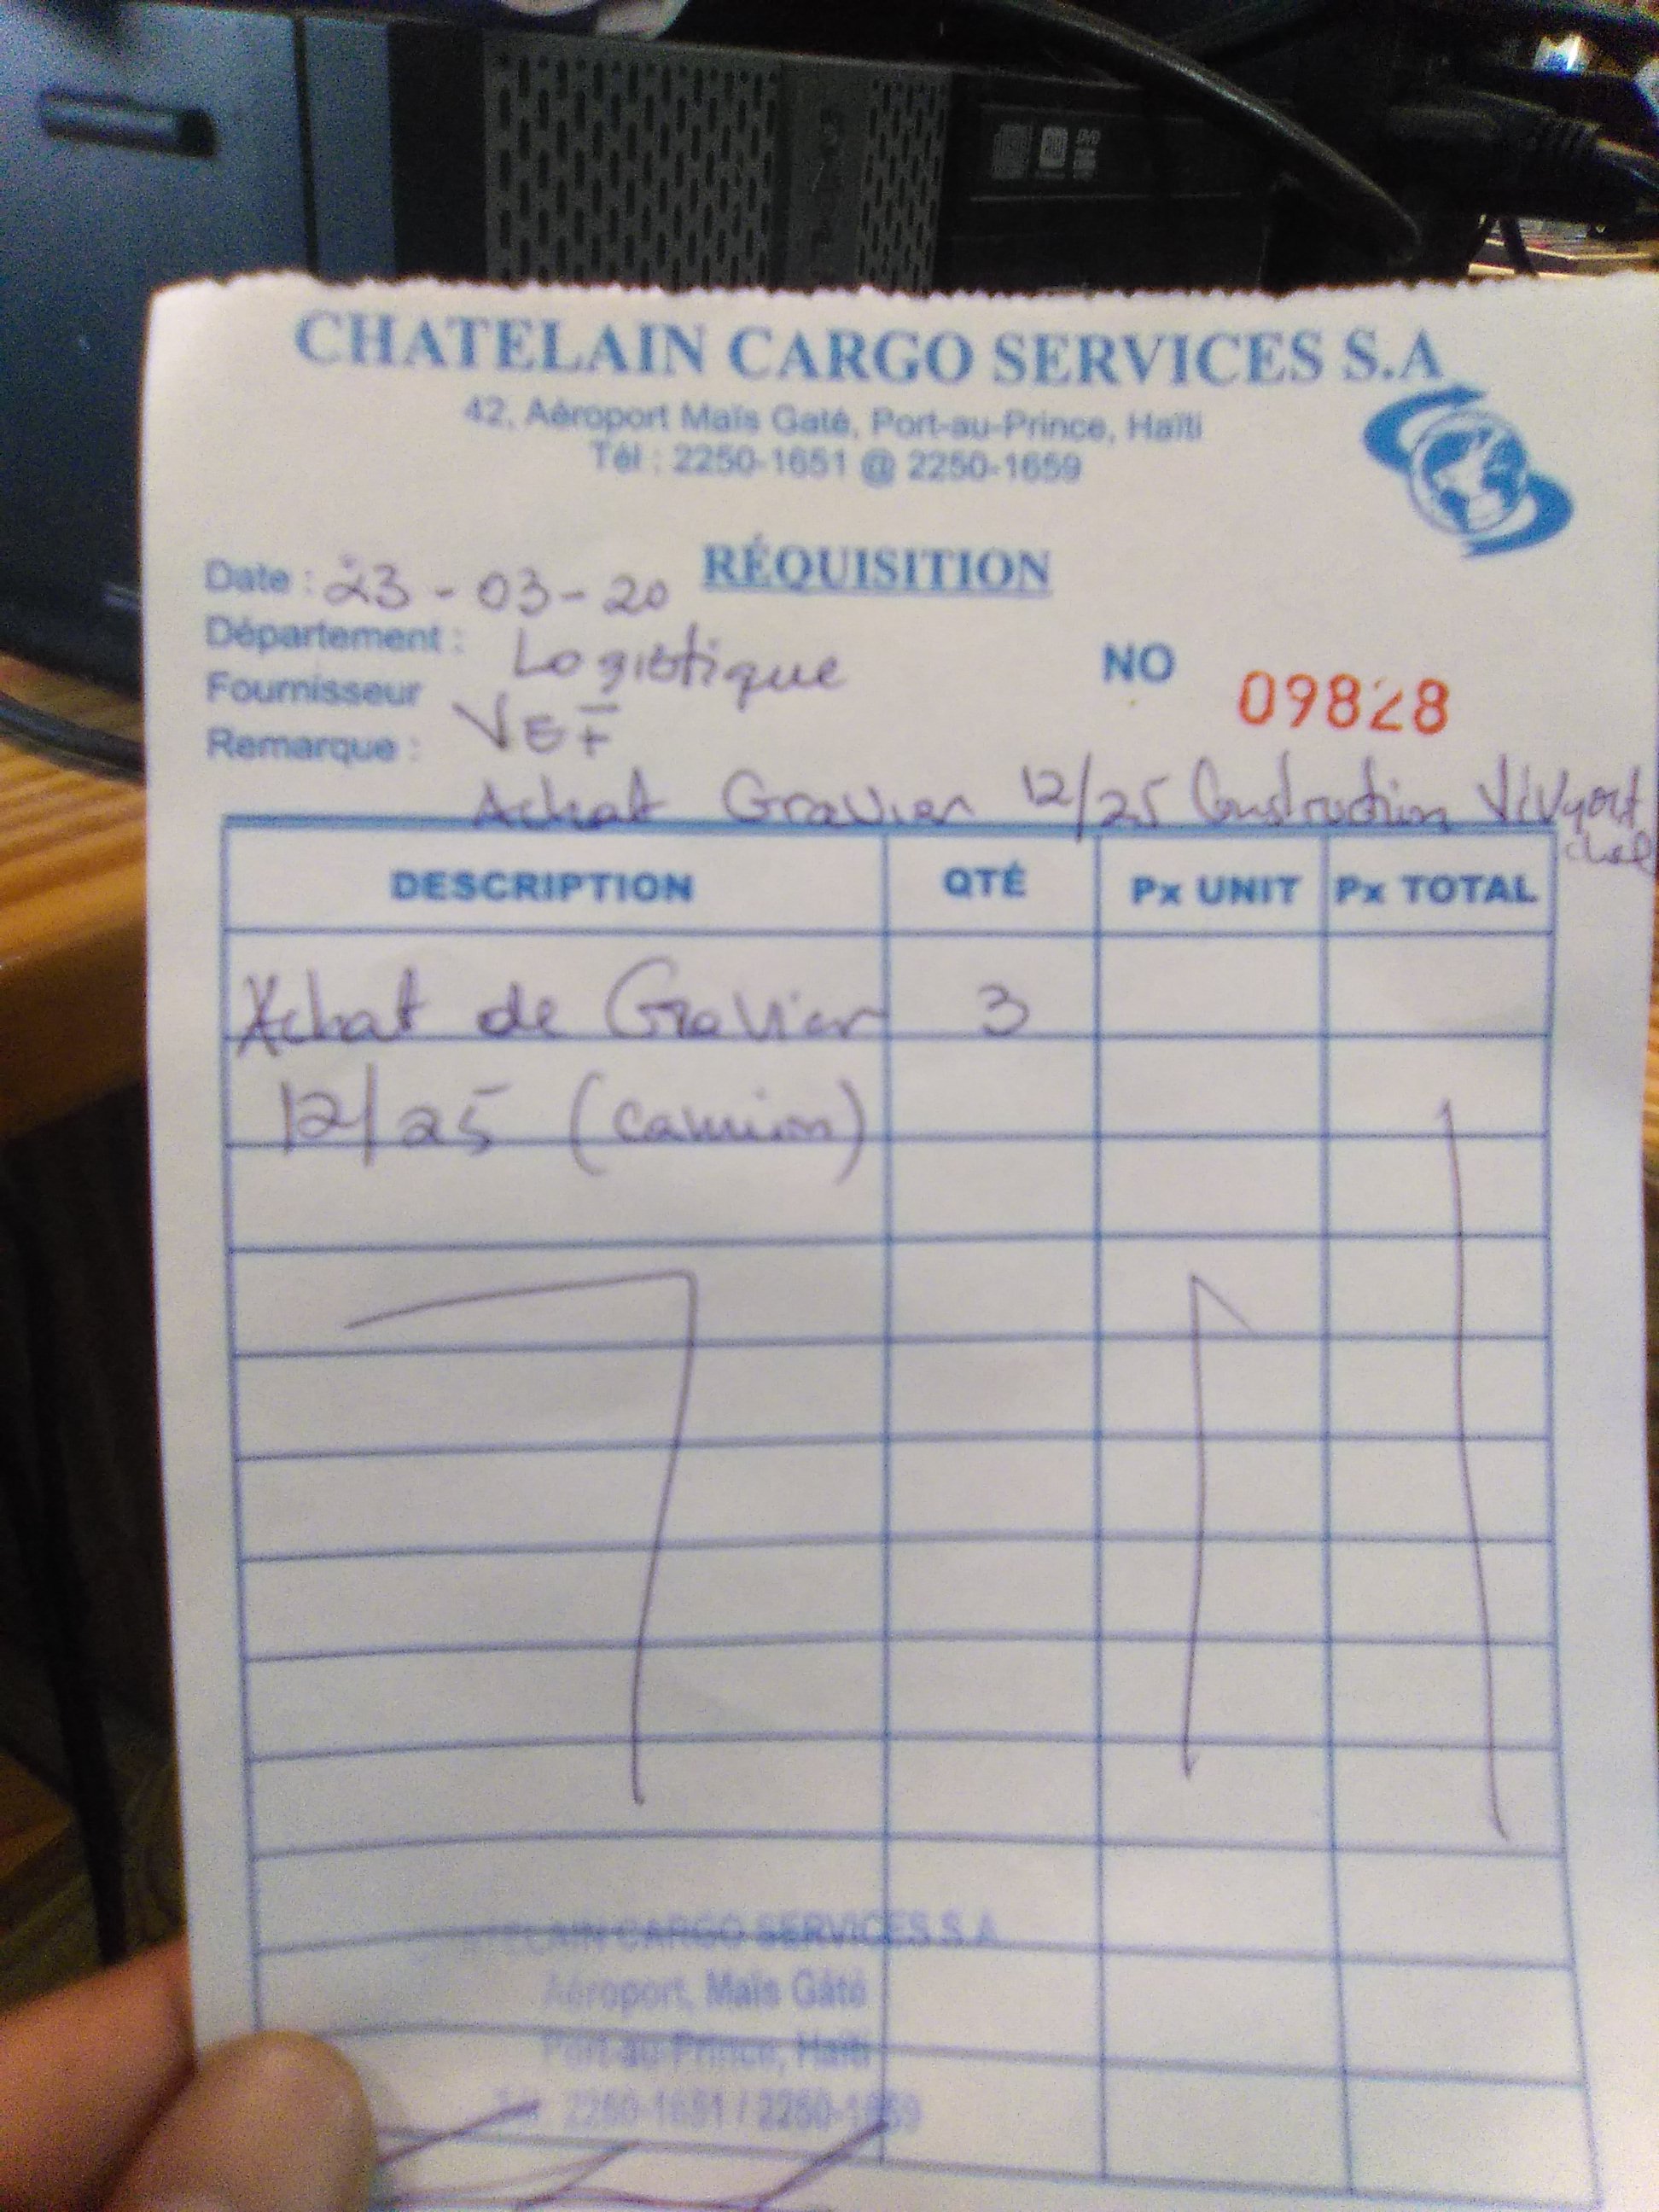 CHATELAIN CARGO SERVICES S.A
42, Aéroport Maïs Gaté, Port-au-Prince, Haïti
Tél : 2250-1651 @ 2250-1659
RÉQUISITION
Date : 23-03-20
Département : Logistique
NO 09828
Fournisseur VEF
Remarque :
Achat Gravier 12/25 Construction
DESCRIPTION QTÉ Px UNIT Px TOTAL
Achat de Gravier 3
12/25 (camion)
TELAIN CARGO SERVICES S.A
Aéroport, Maïs Gâté
Port-au-Prince, Haïti
Tél. 2250-1651 / 2250-1659